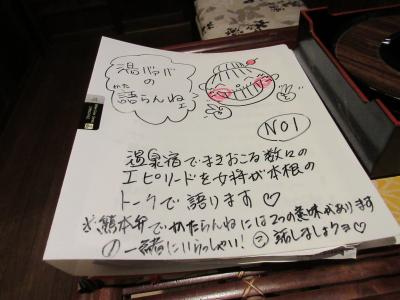 湯バァバ
の
かた
語らんねェ
NO1
温泉宿でまきおこる数々の
エピソードを女将が本根の
トークで語ります♡
※熊本弁でかたらんねには2つの意味があります
① 一緒にいらっしゃい! ② 話しましょうヨ♡